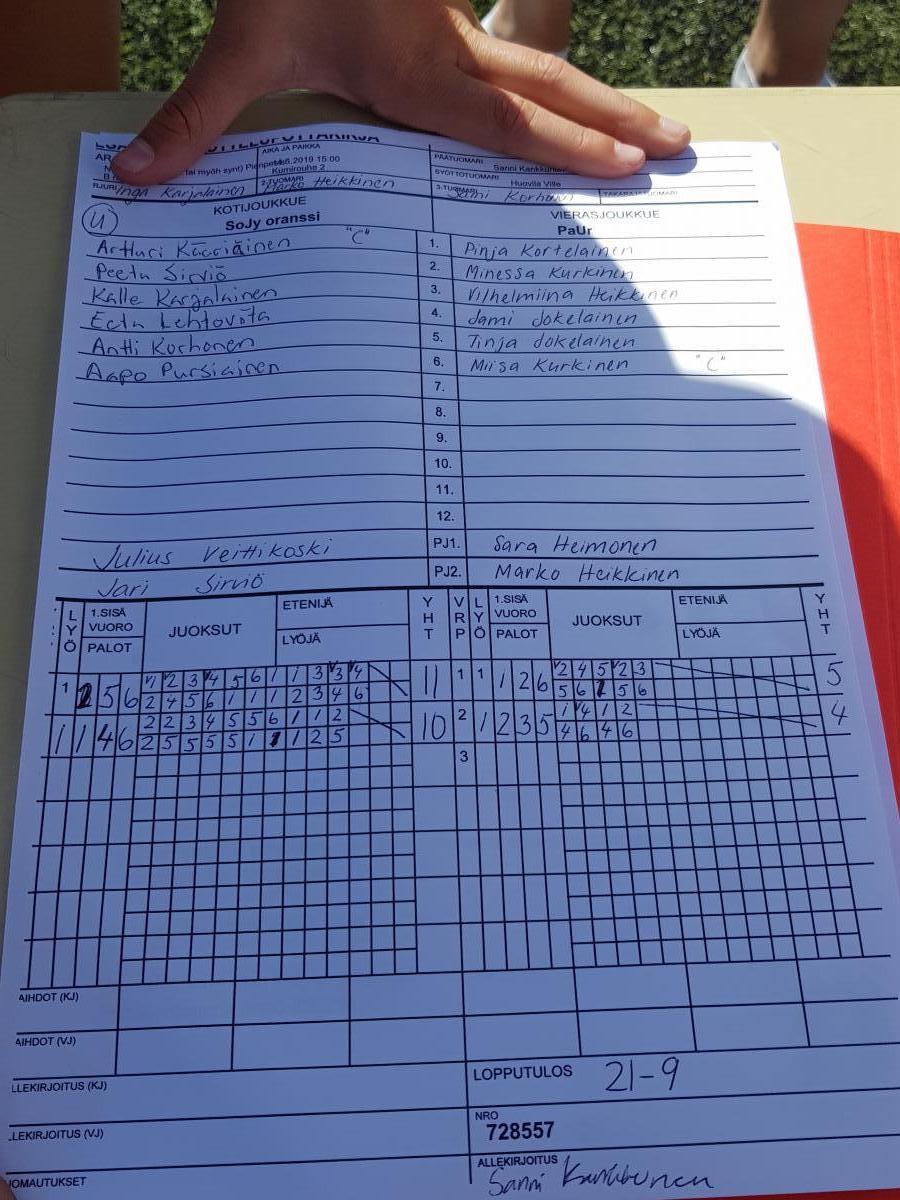 AIKA JA PAIKKA
PÄÄTUOMARI
2019 15:00
Kumirouhe 2
SYÖTTÖTUOMARI
Huovila Ville
Inga Karjalainen 2.TUOMARI Marko Heikkinen
3.TUOMARI
KOTIJOUKKUE VIERASJOUKKUE
SoJy oranssi PaUr
U
"C" 1. Pinja Kortelainen
Peetu Sirviö 2. Minessa Kurkinen
Kalle Karjalainen 3. Vilhelmiina Heikkinen
Eetu Lehtovirta 4. Jami Jokelainen
Antti Korhonen 5. Tinja Jokelainen
Aapo Pursiainen 6. Miisa Kurkinen "C"
7.
8.
9.
10.
11.
12.
Julius Veittikoski PJ1. Sara Heimonen
Jari Sirviö PJ2. Marko Heikkinen
LYÖ 1.SISÄ VUORO PALOT JUOKSUT ETENIJÄ LYÖJÄ YHT VRP LYÖ 1.SISÄ VUORO PALOT JUOKSUT ETENIJÄ LYÖJÄ YHT
1 2 5 6 V1 V2 3 V4 5 6 1 1 3 V3 V4 11 1 1 1 2 6 V2 4 5 V2 3 5
2 4 5 6 1 1 1 2 3 4 6 5 6 1 5 6
1 1 4 6 2 2 3 4 5 5 6 1 1 2 10 2 1 2 3 5 1 V4 1 2 4
2 5 5 5 5 1 1 1 2 5 4 6 4 6
3
AIHDOT (KJ)
AIHDOT (VJ)
LLEKIRJOITUS (KJ)
LOPPUTULOS 21-9
LLEKIRJOITUS (VJ)
NRO
728557
OMAUTUKSET
ALLEKIRJOITUS
Sanni Kankkunen